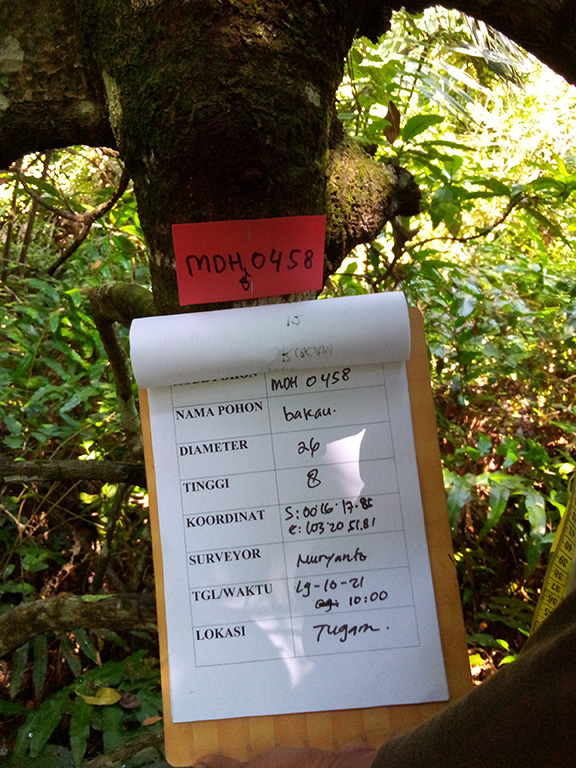 MDH 0458
KODE POHON MDH 0458
NAMA POHON bakau.
DIAMETER 26
TINGGI 8
KOORDINAT S: 00 16. 17.86
E: 103 20 51.81
SURVEYOR Nuryanto
TGL/WAKTU 19-10-21
10:00
LOKASI